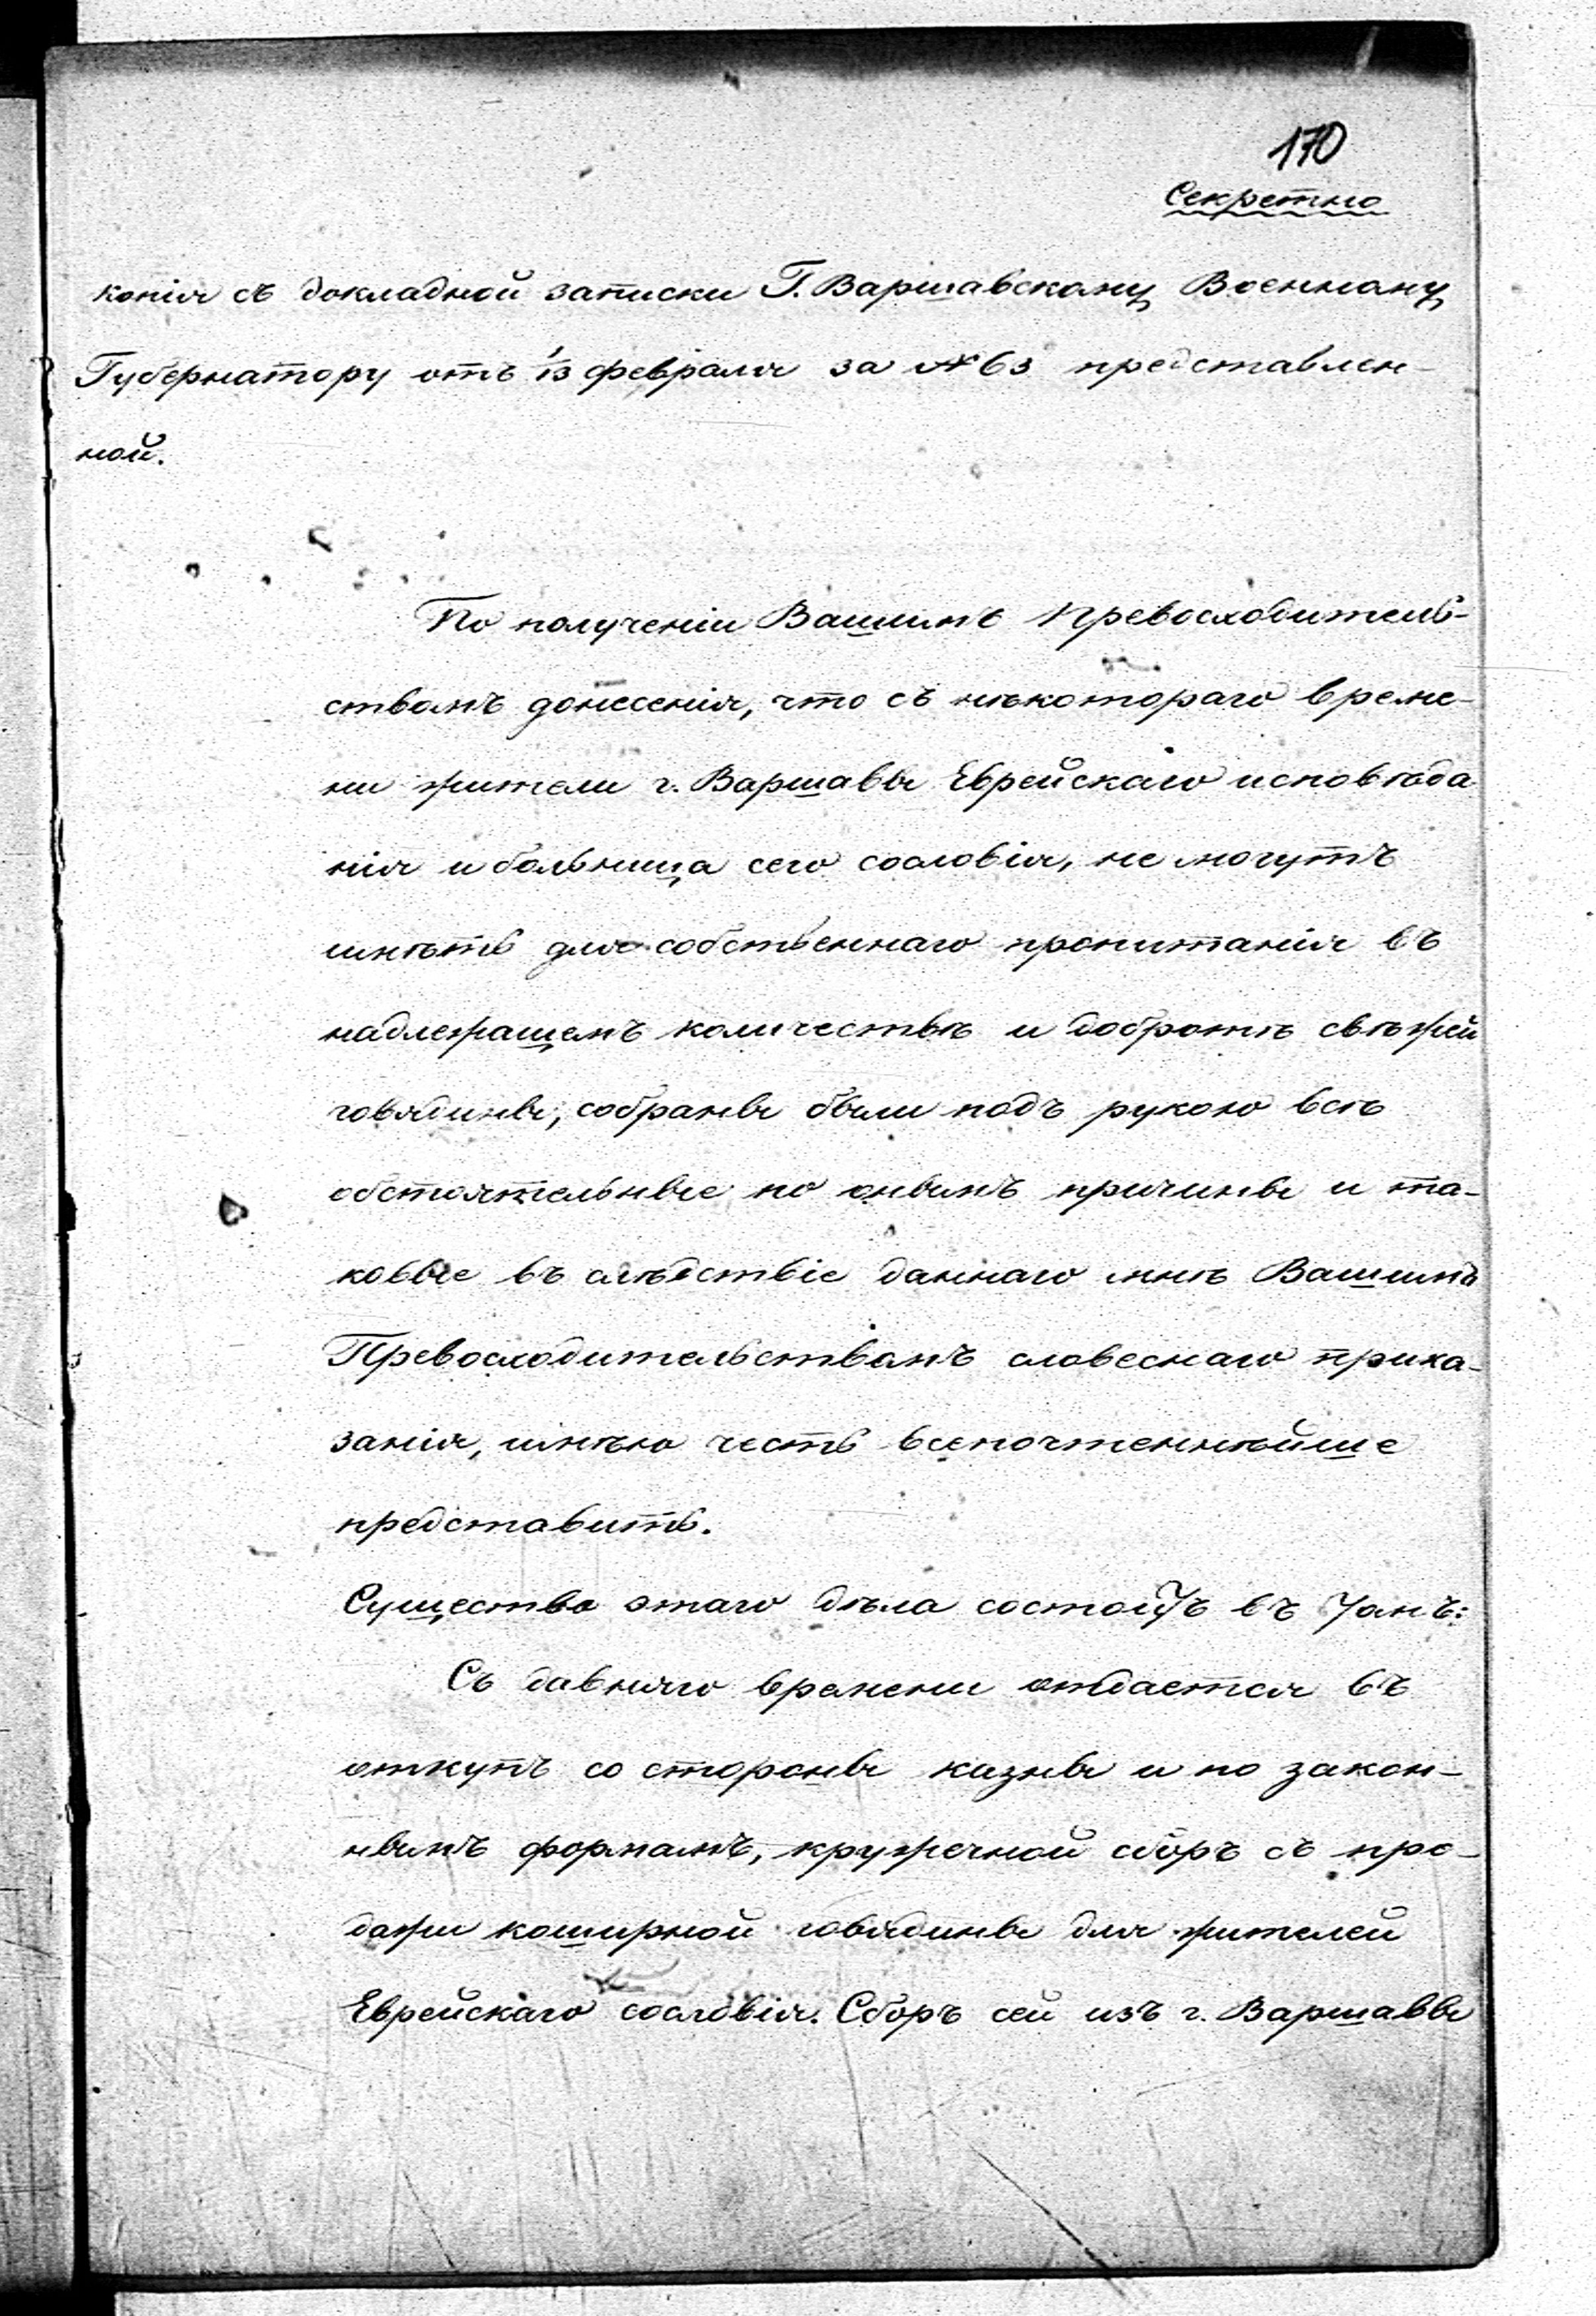 170
Секретно
копія съ докладной записки Г. Варшавскому Военному
Губернатору отъ 1/13 февраля за № 63 представлен-
ной.
По полученіи Вашимъ Превосходитель-
ствомъ донесенія, что съ нѣкотораго време-
ни жители г. Варшавы Еврейскаго исповѣда
нія и больница сего сословія, не могутъ
имѣть для собственнаго пропитанія въ
надлежащемъ количествѣ и добротѣ свѣжей
говядины, собраны были подъ рукою всѣ
обстоятельные по онымъ причины и та-
ковые въ слѣдствіе даннаго мнѣ Вашимъ
Превосходительствомъ словеснаго прика-
занія, имѣю честь всепочтеннѣйше
представить.
Существо этаго дѣла состоитъ въ томъ:
Съ давняго времени отдается въ
откупъ со стороны казны и по закон-
нымъ формамъ, кружечной сборъ съ про-
дажи коширной говядины для жителей
Еврейскаго сословія. Сборъ сей изъ г. Варшавы